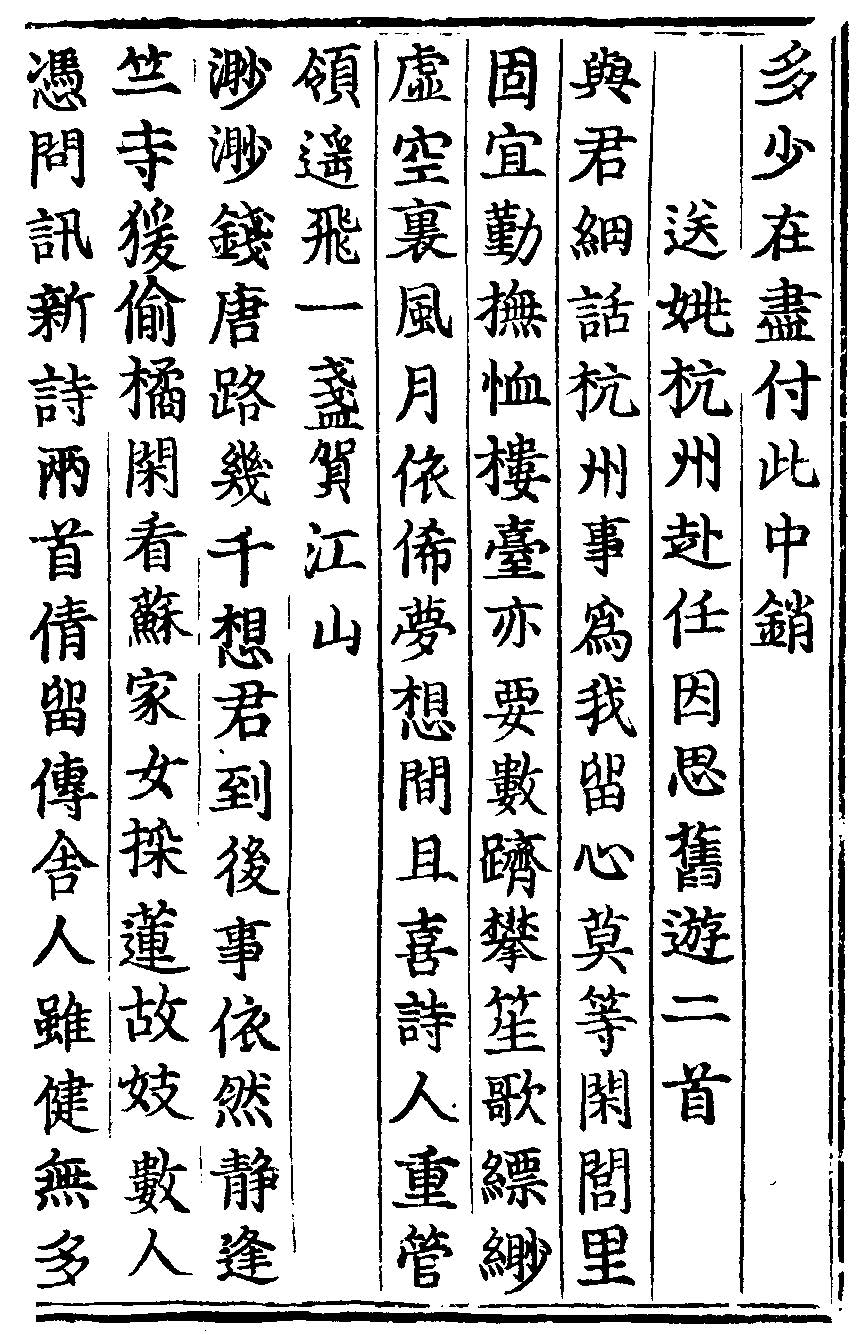 多少在盡付此中銷
送姚杭州赴任因思舊遊二首
與君細話杭州事爲我留心莫等閑閭里
固宜勤撫恤樓臺亦要數躋攀笙歌縹緲
虛空裏風月依俙夢想間且喜詩人重管
領遥飛一盞賀江山
渺渺錢唐路幾千想君到後事依然静逢
竺寺猨偷橘閑看蘇家女採蓮故妓數人
憑問訊新詩兩首倩留傳舍人雖健無多